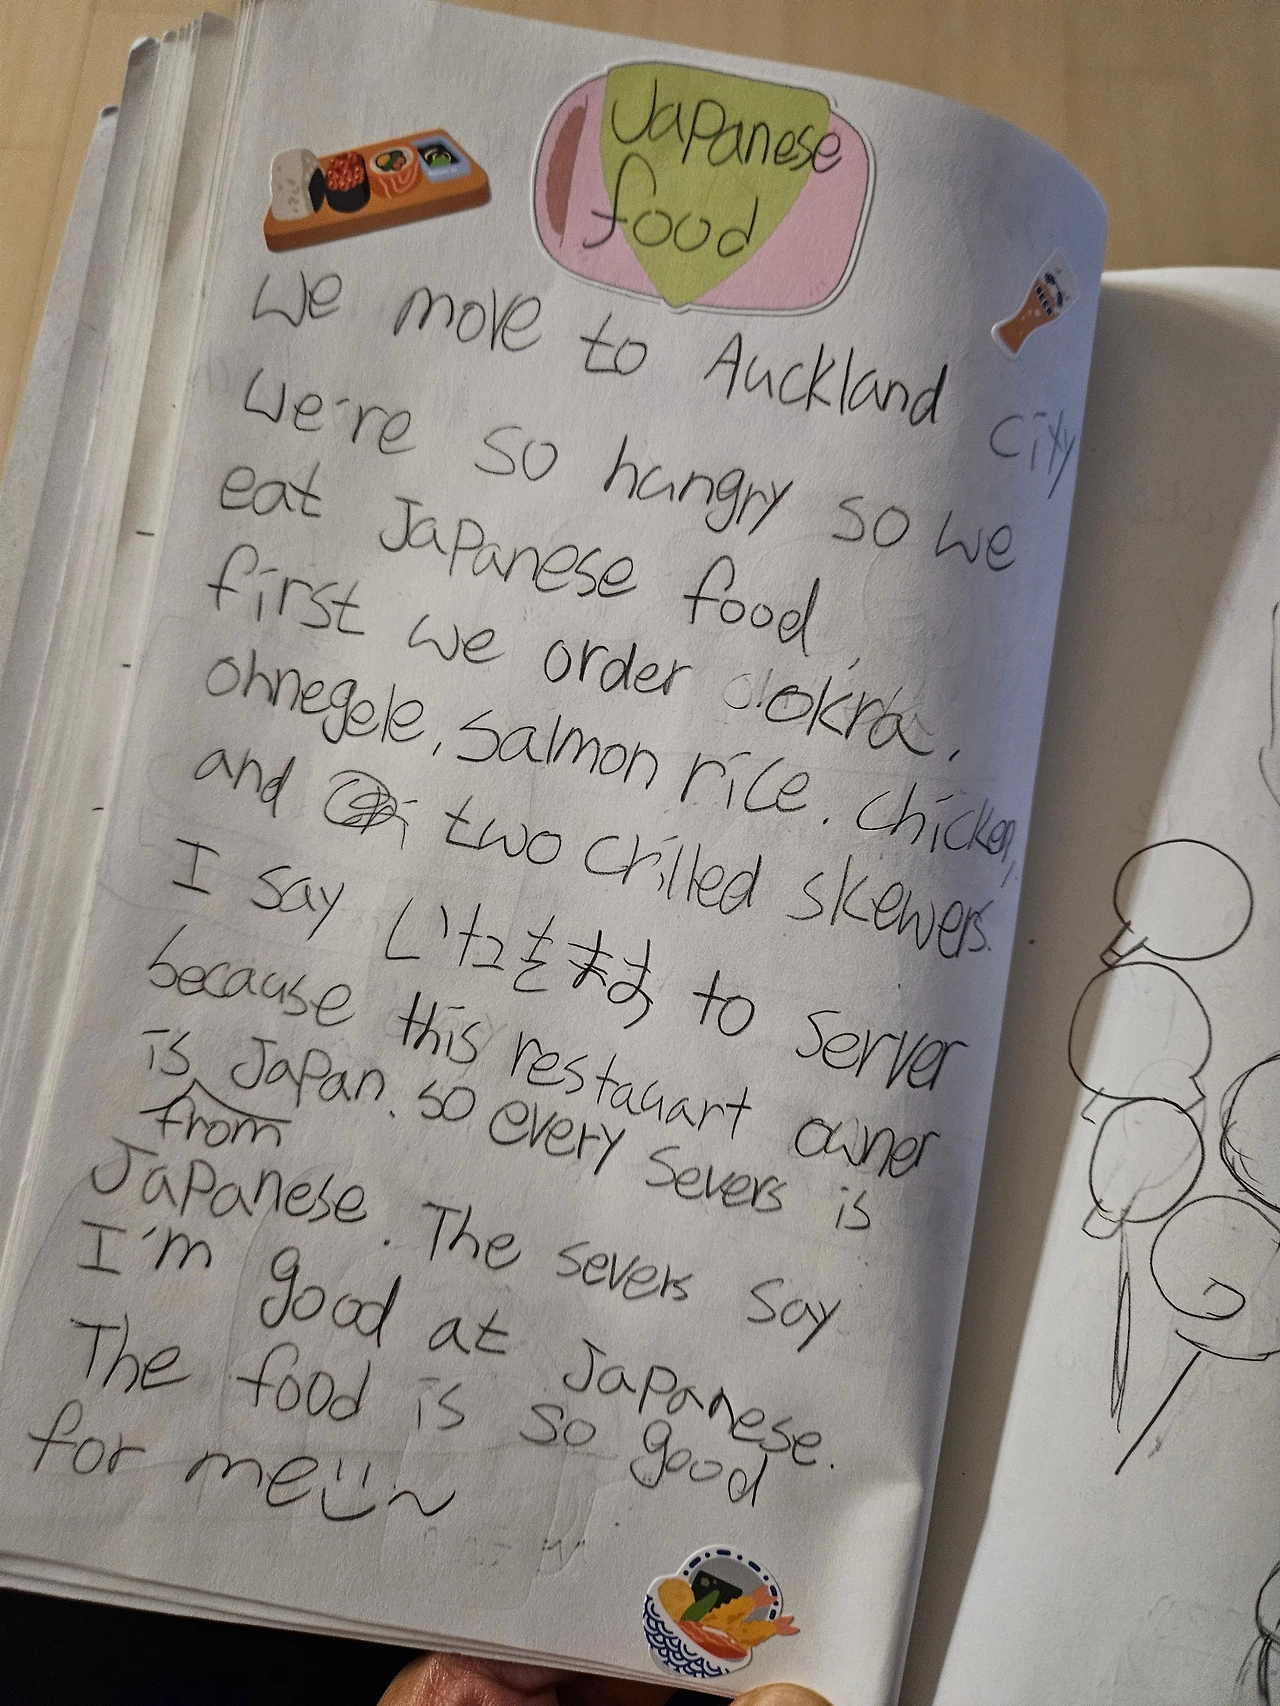 Japanese
food
We move to Auckland city
We're so hungry so we
eat Japanese food.
first we order okra,
ohnegele, salmon rice. chicken,
and two crilled skewers.
I say いたきます to server
because this restauart owner
is from Japan. so every severs is
Japanese. The severs say
I'm good at Japanese.
The food is so good
for me
BEER